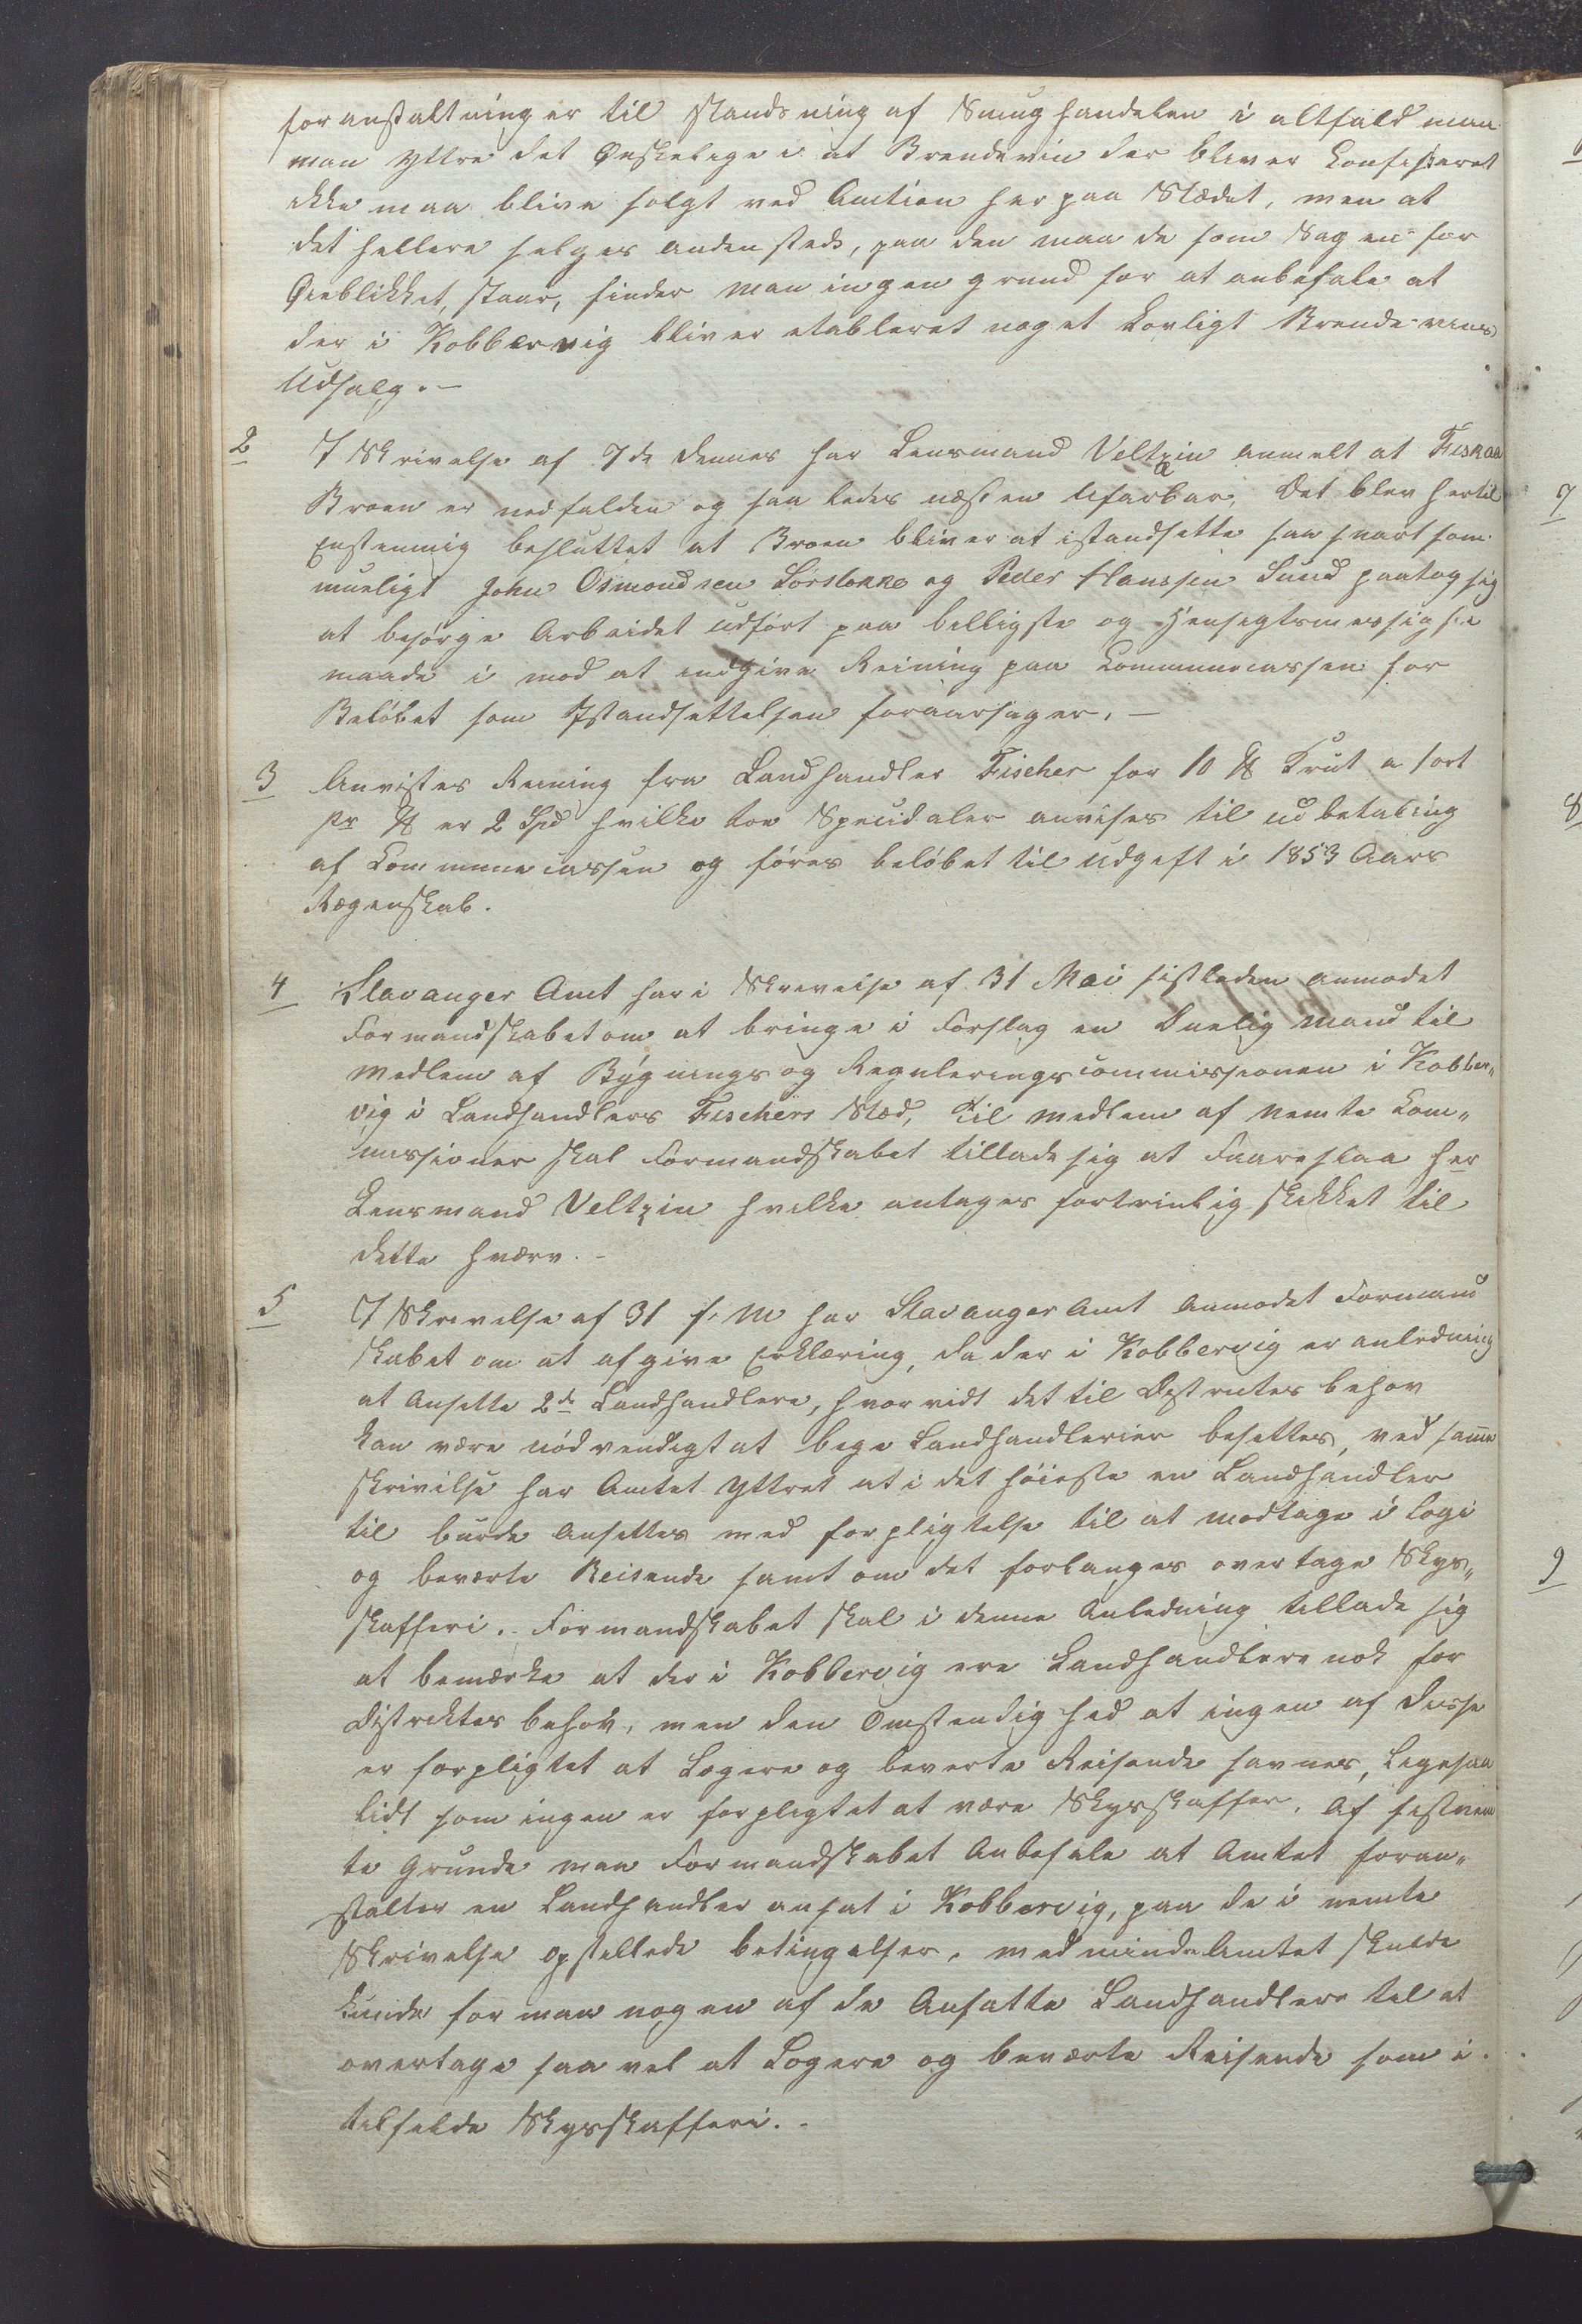 foranstaltninger til standsning af Smughandelen i altfald maa
man yttre det Ønskelige i at Brendevin der bliver Confiskeret
ikke maa blive solgt ved Auction her paa Stædet, men at
det hellere selges andensteds, paa den maade som Sagen for
Øieblikket staar, finder man ingen grund for at anbefale at
der i Kobbervig bliver etableret noget Lovligt Brendevins
Udsalg. —
2 I Skrivelse af 7de dennes har Lensmand Veltzin anmelt at Feskaa
Broen er nedfalden og saaledes næsten Ufarbar, Det blev hertil
Enstemmig besluttet at Broen bliver at istandsette saa snart som
mueligt John Osmondsen Sørstokke og Peder Hanssen Sund paatog sig
at besørge Arbeidet udført paa billigste og Hensigtsmessigste
maade i mod at indgive Reining paa Communecassen for
Beløbet som Istandsettelsen foraarsager. —
3 Anvistes Reining fra Landhandler Fischer for 10 ℔ Krut a 1 ort
pr ℔ er 2 Spd hvilke toe Speciedaler anvises til udbetaling
af Communecassen og føres beløbet til udgift i 1853 Aars
Regenskab.
4 Stavanger Amt har i Skrivelse af 31 Mai sistleden anmodet
Formandskabet om at bringe i Forslag en Duelig mand til
Medlem af Bygnings og Reguleringscommissionen i Kobber„
vig i Landhandlers Fischers Stæd, til medlem af nemte Com„
missioner skal Formandskabet tillade sig at Foareslaa her
Lensmand Veltzin hvilke antages fortrinlig skikket til
dette hværv. -
5 I Skrivelse af 31 f. M har Stavanger Amt Anmodet Formand
skabet om at afgive Erklæring, da der i Kobbervig er anledning
at Ansette 2de Landhandlere, hvorvidt det til Distriktes behov
kan være nødvendigt at bege Landhandlerier besettes, ved samme
skrivelse har Amtet Yttret at i det høieste en Landhandler
til burde Ansettes med forpligtelse til at modtage i Logi
og beværte Reisende samt om det forlanges overtage Skys„
skafferi. Formandskabet skal i denne Anledning tillade sig
at bemærke at der i Kobbervig ere Landhandlere nok for
Distriktes behov, men den Omstendighed at ingen af disse
er forpligtet at Logere og beverte Reisende savnes, Ligesaa
lidt som ingen er forpligtet at være Skysskaffer. Af sistnem
te Grunde maa Formandskabet Anbefale at Amtet foran„
stalter en Landhandler ansat i Kobbervig, paa de i nemte
Skrivelse opstillede betingelser, medmindre Amtet skulde
kunde formaa nogen af de Ansatte Landhandlere til at
overtage saa vel at Logere og beværte Reisende som i
tilfelde Skysskafferi. -
7
8
9